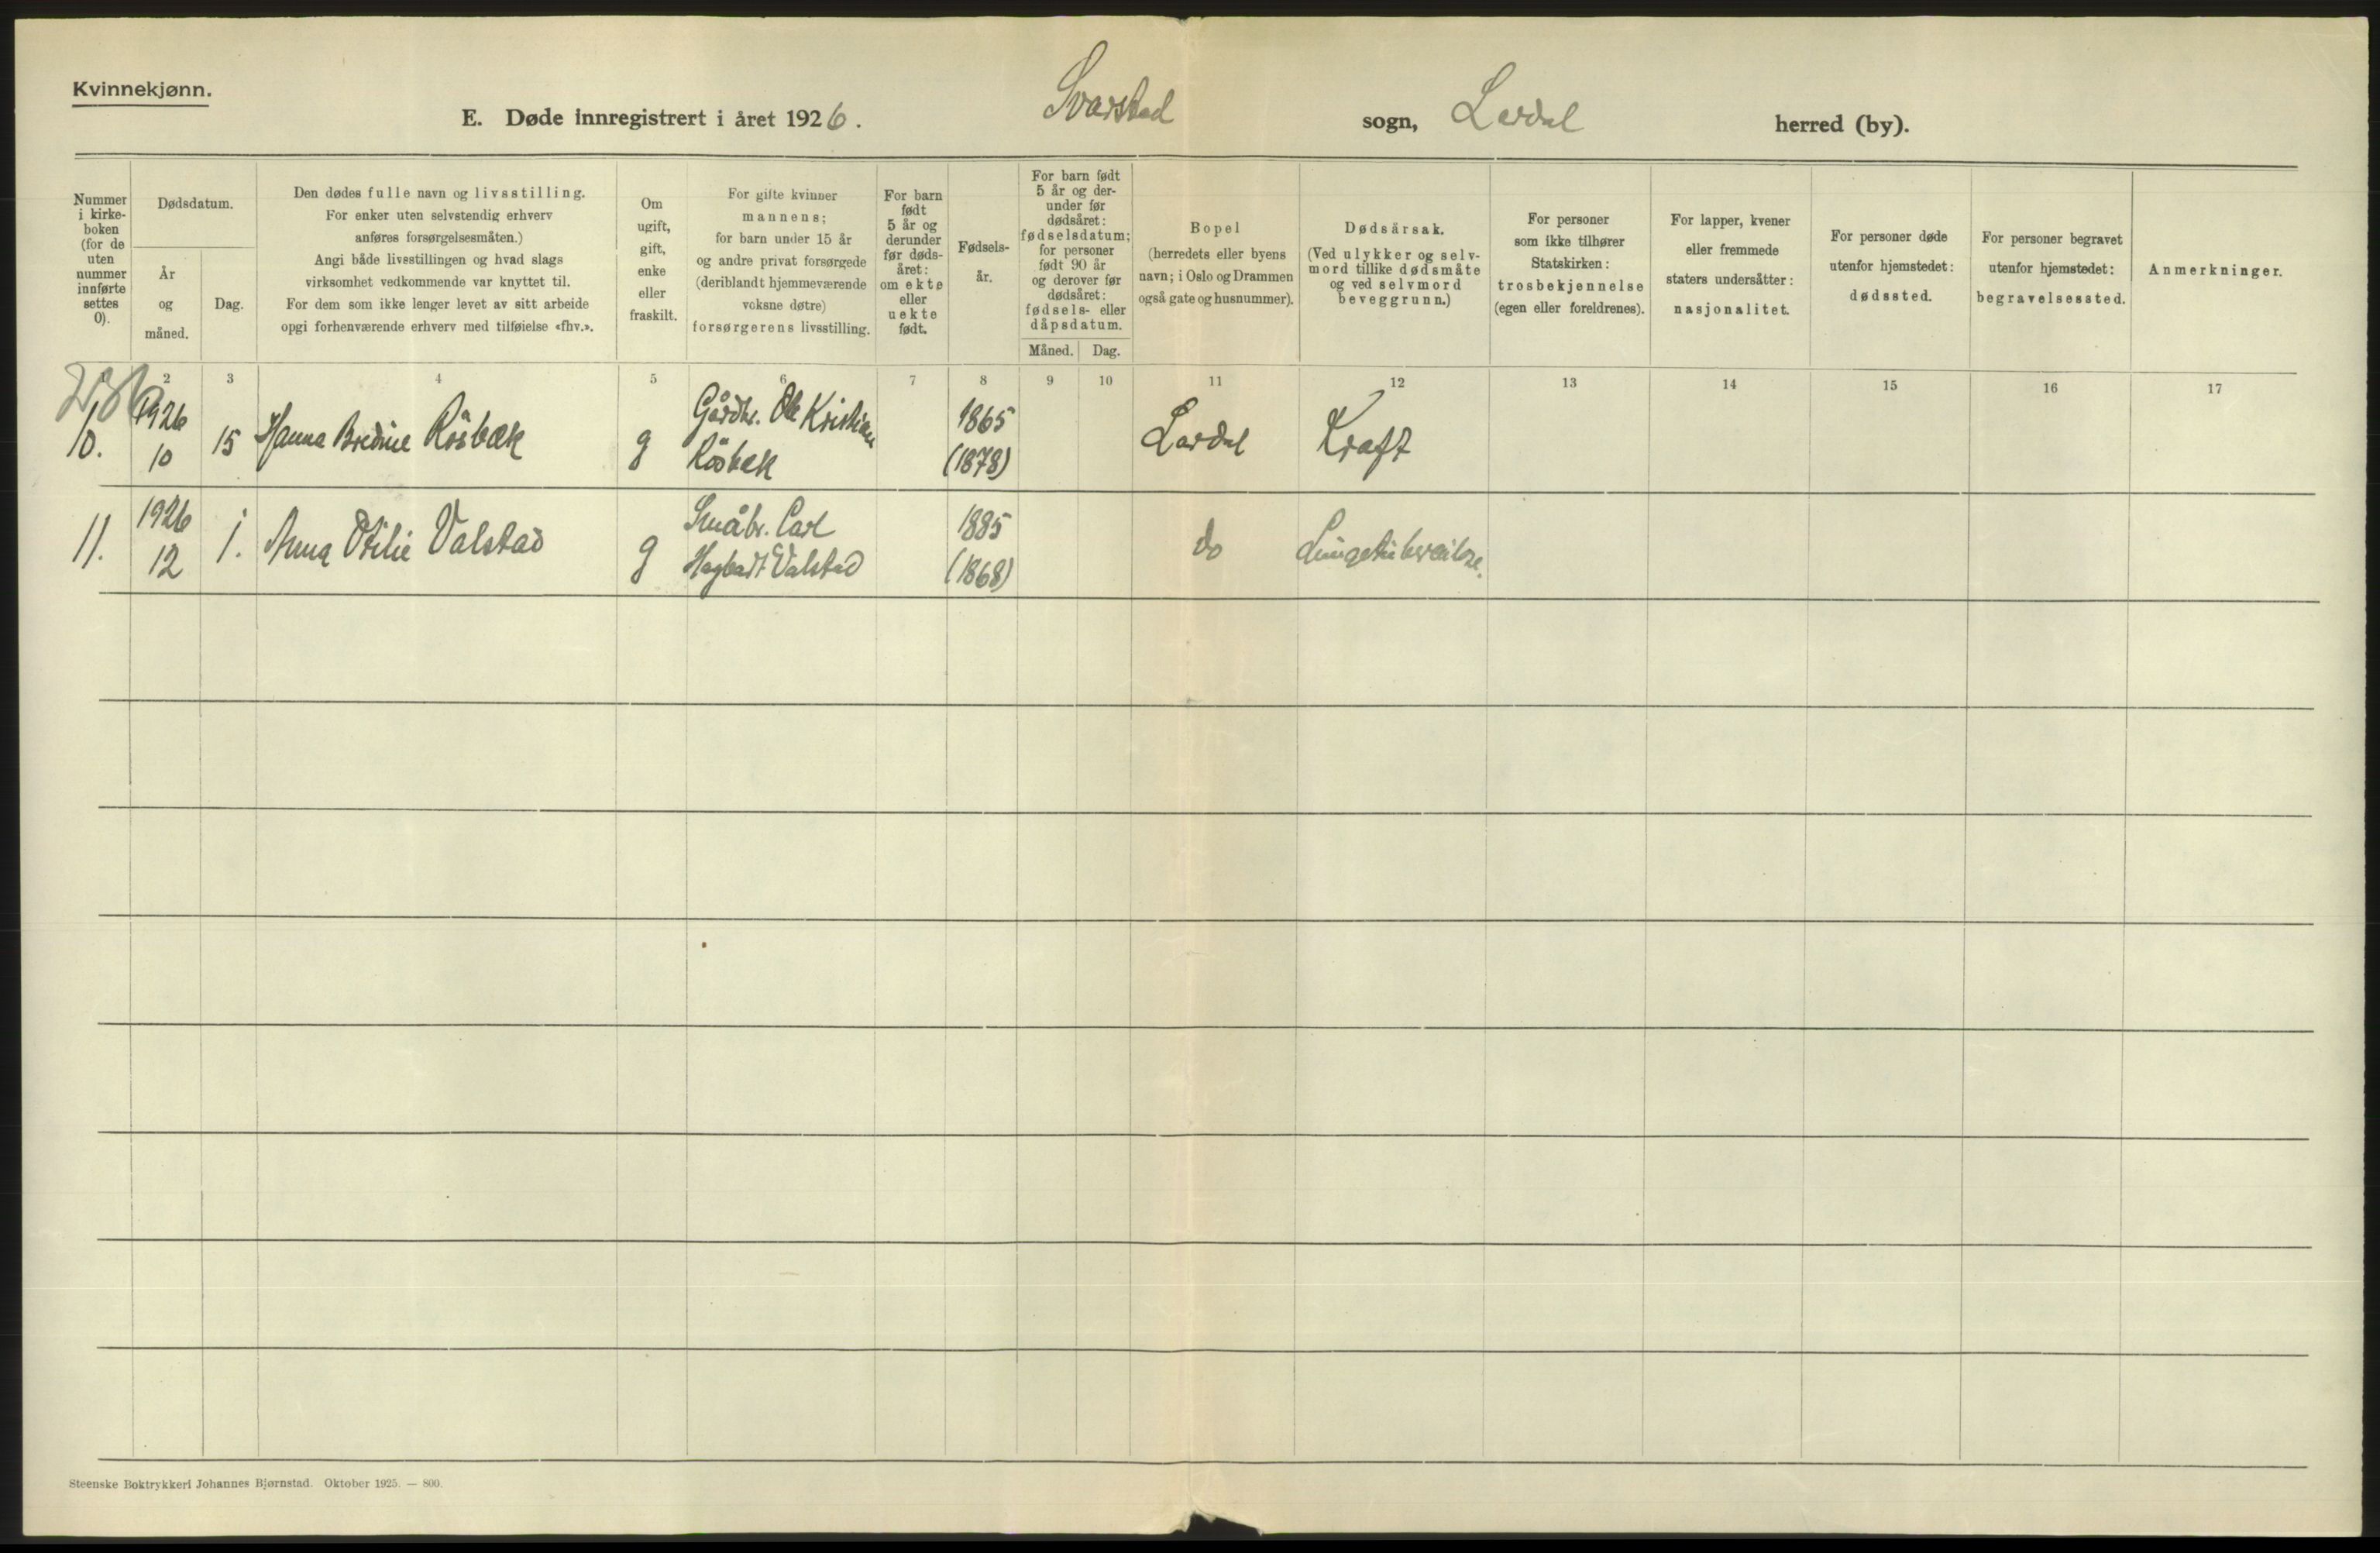 Kvinnekjønn.
E. Døde innregistrert i året 1926. Svarstad sogn, Lardal herred (by).
Nummer
i kirke-
boken
(for de
uten
nummer
innførte
settes
0).
Dødsdatum.
År
og
måned.
Dag.
Den dødes fulle navn og livsstilling.
For enker uten selvstendig erhverv
anføres forsørgelsesmåten.)
Angi både livsstillingen og hvad slags
virksomhet vedkommende var knyttet til.
For dem som ikke lenger levet av sitt arbeide
opgi forhenværende erhverv med tilføielse «fhv.».
Om
ugift,
gift,
enke
eller
fraskilt.
For gifte kvinner
mannens;
for barn under 15 år
og andre privat forsørgede
(deriblandt hjemmeværende
voksne døtre)
forsørgerens livsstilling.
For barn
født
5 år og
derunder
før døds-
året:
om ekte
eller
uekte
født.
Fødsels-
år.
For barn født
5 år og der-
under før
dødsåret:
fødselsdatum;
for personer
født 90 år
og derover før
dødsåret:
fødsels- eller
dåpsdatum.
Måned. Dag.
Bopel
(herredets eller byens
navn; i Oslo og Drammen
også gate og husnummer).
Dødsårsak.
(Ved ulykker og selv-
mord tillike dødsmåte
og ved selvmord
beveggrunn.)
For personer
som ikke tilhører
Statskirken:
trosbekjennelse
(egen eller foreldrenes).
For lapper, kvener
eller fremmede
staters undersåtter:
nasjonalitet.
For personer døde
utenfor hjemstedet:
dødssted.
For personer begravet
utenfor hjemstedet:
begravelsessted.
Anmerkninger.
2 3 4 5 6 7 8 9 10 11 12 13 14 15 16 17
10.
1926
10
15
Hanna Bredine Råsbæk
g
Gårdbr. Ole Kristian
Råsbæk
1865
(1878)
Lardal
Kraft
11.
1926
12
1.
Anna Otilie Valstad
g
Småbr. Carl
Hagbart Valstad
1885
(1868)
do
Lungetuberkulose.
Steenske Boktrykkeri Johannes Bjørnstad. Oktober 1925. — 800.